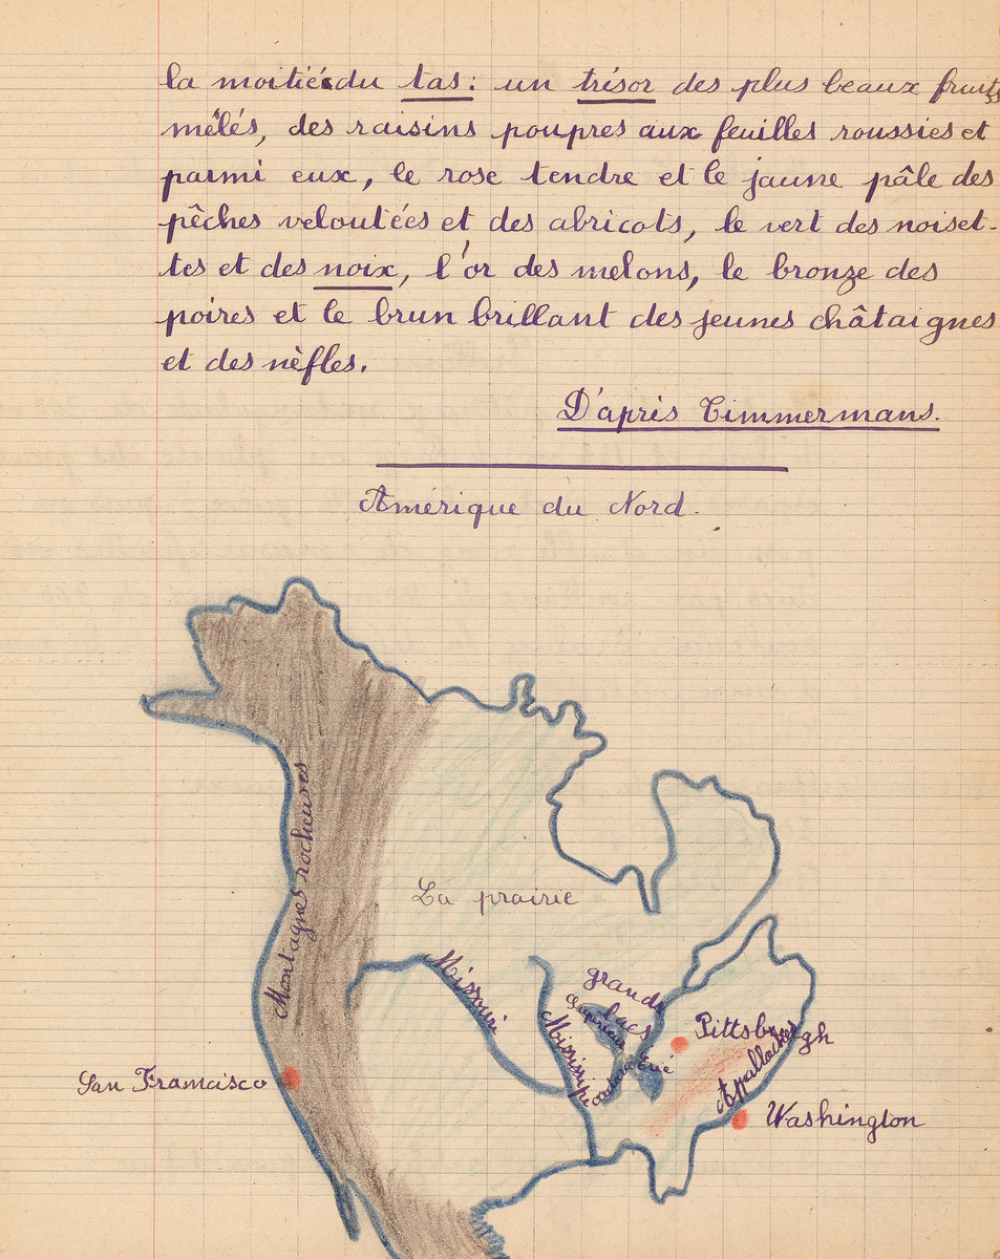 la moitié du tas : un trésor des plus beaux fruits
mêlés, des raisins poupres aux feuilles roussies et
parmi eux, le rose tendre et le jaune pâle des
pêches veloutées et des abricots, le vert des noiset-
tes et des noix, l'or des melons, le bronze des
poires et le brun brillant des jeunes châtaignes
et des nèfles.
D'après Timmermans.
Amérique du Nord.
Montagnes rocheuses
La prairie
Missouri
grands
lacs
Supérieur
Mississipi
Erié
Pittsburgh
Appallaches
San Framcisco
Washington